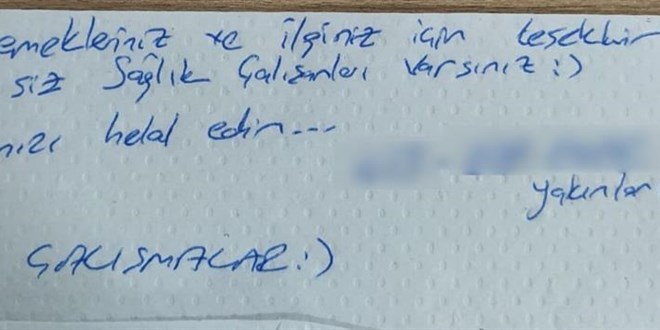 emekleriniz ve ilginiz için teşekkür
siz Sağlık Çalışanları varsınız :)
nızı helal edin...
yakınları
ÇALIŞMALAR :)